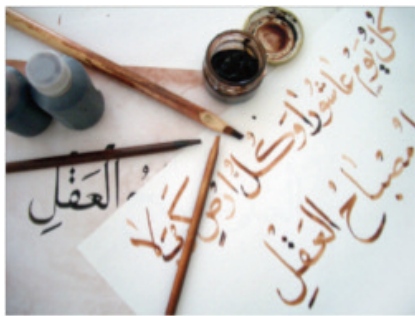 كُلُّ يَومٍ عَاشُورَا وَكُلُّ اَرضٍ كَربَلَا
مِصْبَاحُ العَقْلِ
العَقْلِ